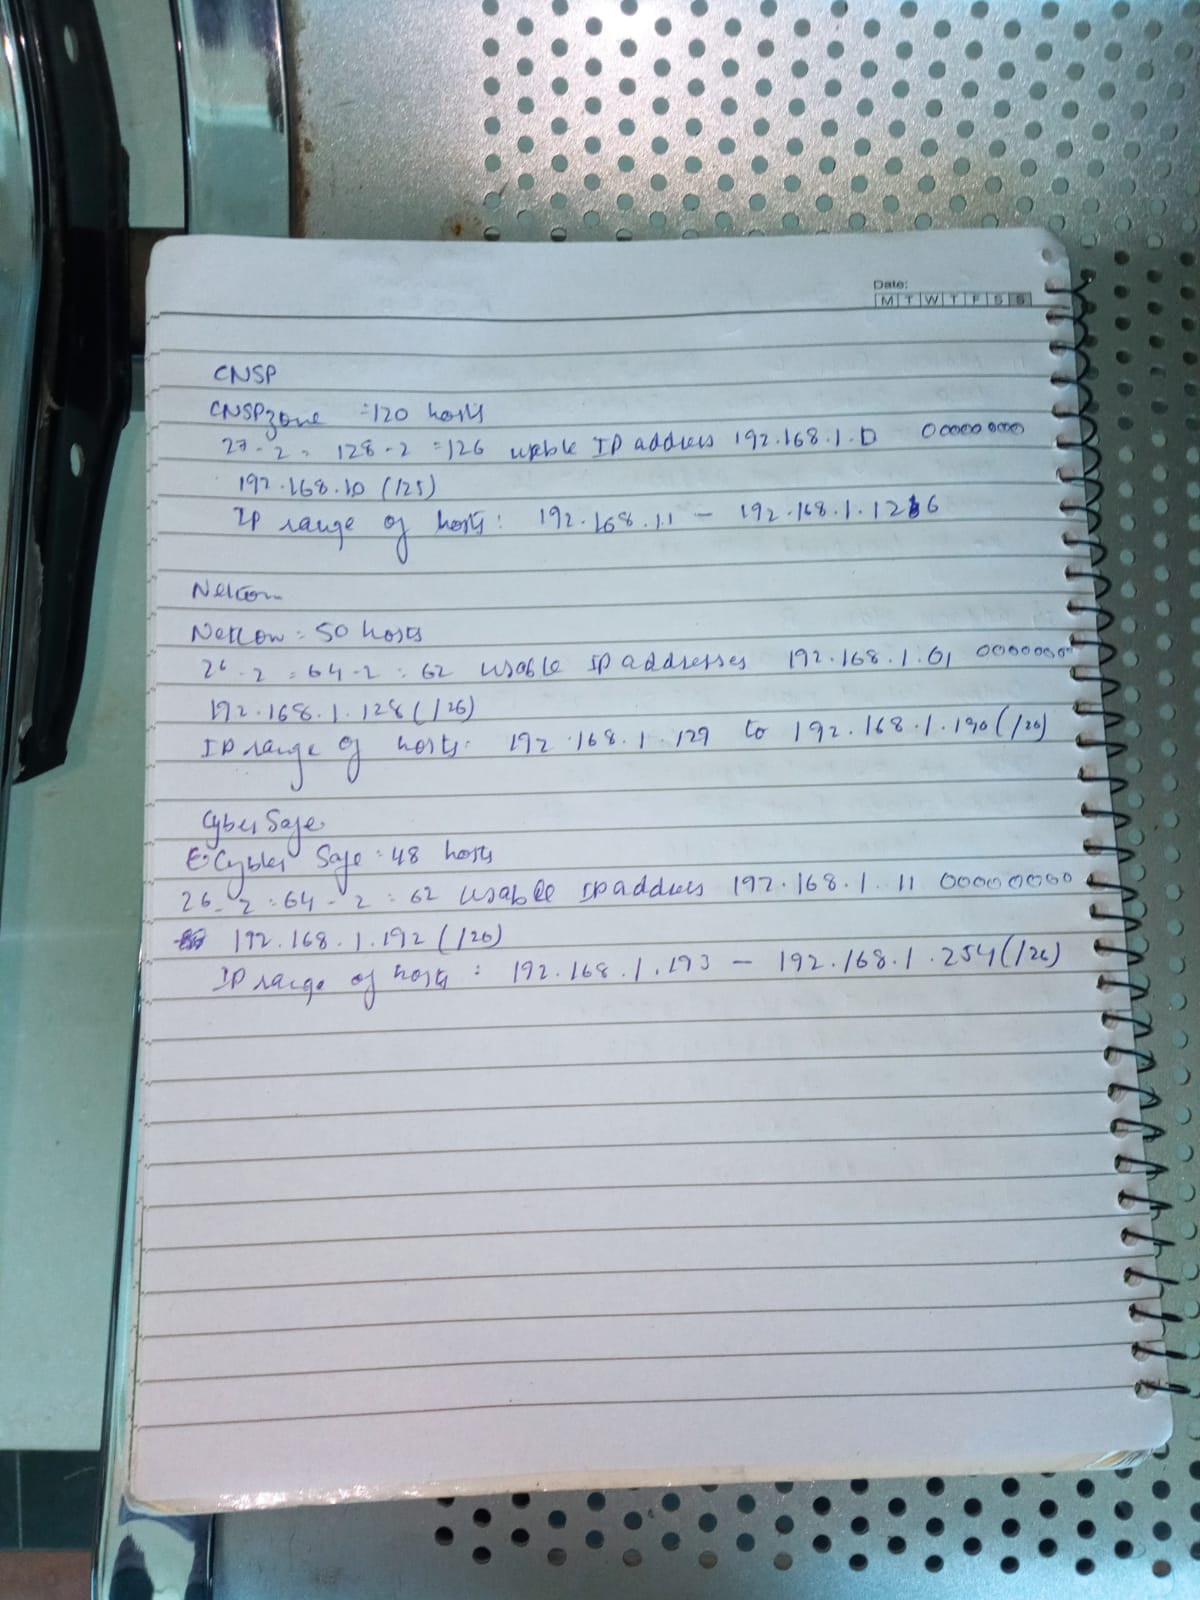 Date:
M T W T F S S
CNSP
CNSPzone =120 hosts
27-2= 128-2 =126 usable IP address 192.168.1.0 00000000
192.168.10 (125)
IP range of hosts: 192.168.1.1 - 192.168.1.126
Netcom
Netcom = 50 hosts
26-2=64-2=62 usable IP addresses 192.168.1.01 0000000
192.168.1.128(/26)
IP range of hosts: 192.168.1.129 to 192.168.1.190(/26)
Cyber Safe
Cyber Safe = 48 hosts
26-2=64-2=62 usable IP address 192.168.1.11 00000000
192.168.1.192 (/26)
IP range of hosts : 192.168.1.193 - 192.168.1.254(/26)